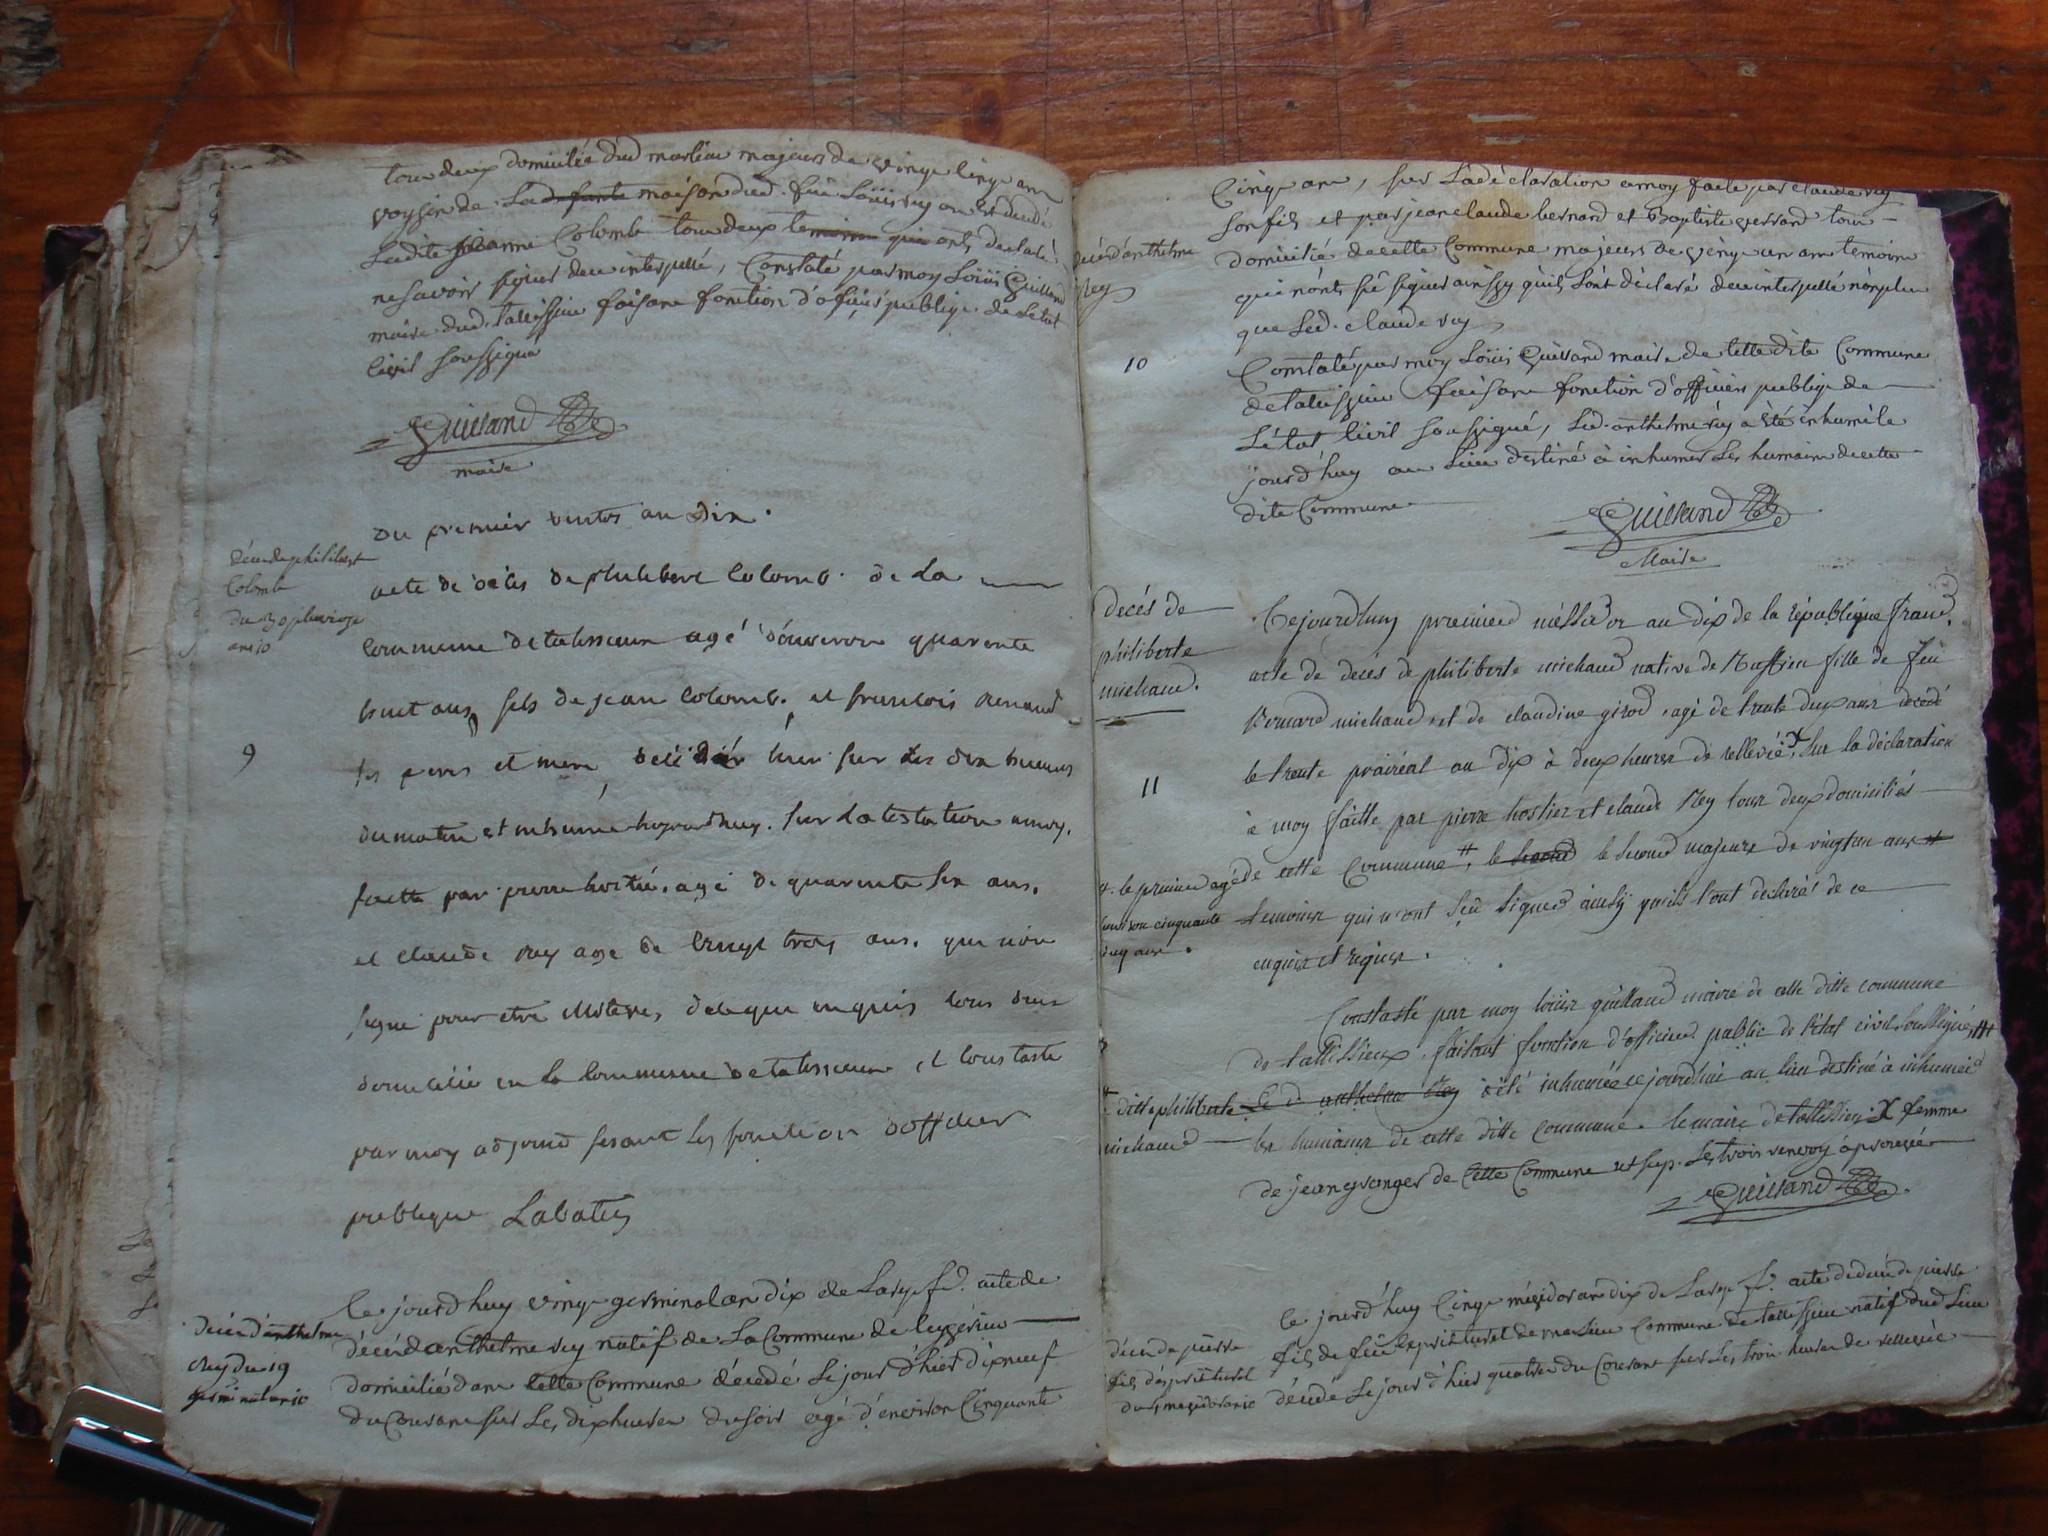 tous deux domicilié dud marlieu majeurs de vingt cinq ans
voysin de la maison dud. feu Louis rey
Ladite jeanne Colomb tous deux temoins qui ont déclaré
ne savoir signer de ce interpellé, Constaté par moy Loüis Guilland
maire dud. talissieu faisant fonction d'officier publique de Létat
Civil soussigné
Guilland
maire
Du premier ventos an Dix.
décès de philibert
Colomb
du 30 pluviose
an 10
acte de décès de philibert Colomb. de La
commune de talissieux agé d'environ quarente
huit ans, fils de jean Colomb. et francois Renaud
ses peres et mere, hier sur les dix heures
du matin et inhumé aujourdhuy. sur latestation a moy.
9
faitte par pierre hostié. agé de quarente six ans.
et claude rey age de vingt trois ans. qui non
signé pour etre illiterés, de ce que enquis tous deux
domicilié en la commune de talissieux, et Constaté
par moy adjoint fesant les fonction dofficier
publique Labatie
décès d'anthelme
Rey du 19
germinal an 10
Le jourd'huy vingt germinal an dix de La rep. f.e acte de
décès d'anthelme rey natif de La Commune de
domicilié dans cette Commune décédé Le jour d'hier dixneuf
du Courant sur Les dix heures du soir agé d'environ Cinquante
décès d'anthelme
Rey
10
Cinq ans, sur La déclaration a moy faite par claude rey
son fils et par jean claude bernard et Baptiste tous
domicilié de cette Commune majeurs de vingt un ans temoins
qui n'ont sçu signer ainssy qu'ils L'ont déclaré de ce interpellé nonplus
que Led. claude rey
Constaté par moy Loüis Guilland maire de cette dite Commune
de talissieu faisant fonction d'officier publique de
L'état Civil soussigné, Led. anthelme rey a été inhumé le
jourd'huy au Lieu destiné à inhumer Les humains de cette
dite Commune
Guilland
Maire
decés de
philiberte
michaud.
11
Cejourdhuy premier messidor an dix de la république franc.
acte de decés de philiberte michaud native de Ruffieu fille de feu
Bernard michaud et de claudine girod, agé de trente deux ans décédé
le trente prairéal an dix à deux heures de rellevée X, Sur la déclaration
à moy faitte par pierre hostier et claude Rey tous deux domiciliés
de cette Commune #, le second le second majeurs de vingtun ans #
# le premier agé
environ cinquante
deux ans.
temoins qui n'ont sçu signer ainsy qu'ils l'ont declaré de ce
enquis et requis.
Constasté par moy loüis guilland maire de cette ditte commune
de tallissieux. faisant fonction d'officier public de l'état civil soussigné, ##
# ditte philiberte
michaud
Le d anthelme Rey a été inhumée ce jourdhui au lieu destiné à inhumer
les humains de cette ditte commune. le maire de tallissieu. X femme
de jean granger de cette Commune Les trois renvoy approuvé
Guilland
décès de pierre
fils d'esprit turel
du 5 messidor an 10
Le jourd'huy Cinq messidor an dix de La rep. f.e acte de décès de pierre
fils de feu esprit turel de marlieu Commune de talissieu natif dud Lieu
décédé Le jour d'hier quatre du Courant sur Les trois heures de rellevée